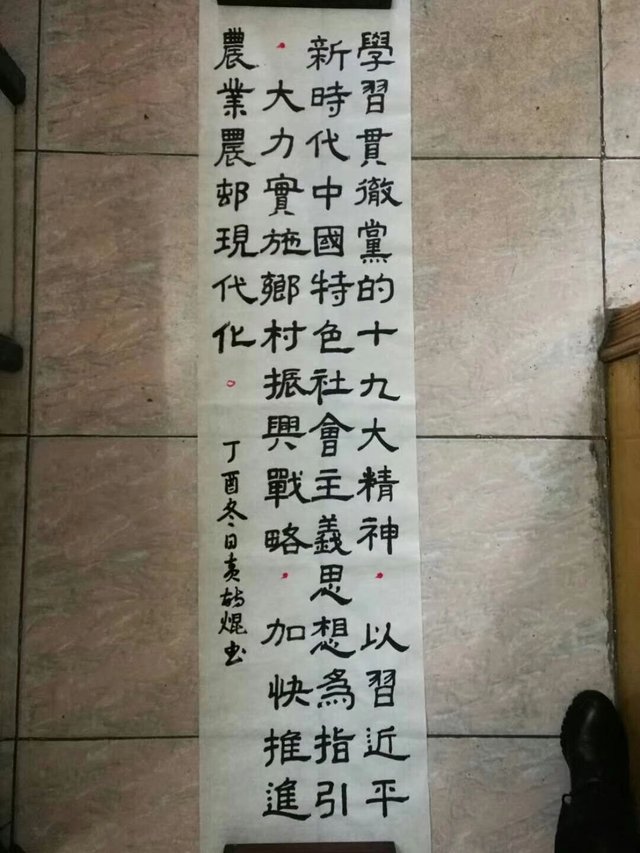 學習貫徹黨的十九大精神·以習近平
新時代中國特色社會主義思想為指引
·大力實施鄉村振興戰略·加快推進
農業農邨現代化。
丁酉冬日黄 焜书